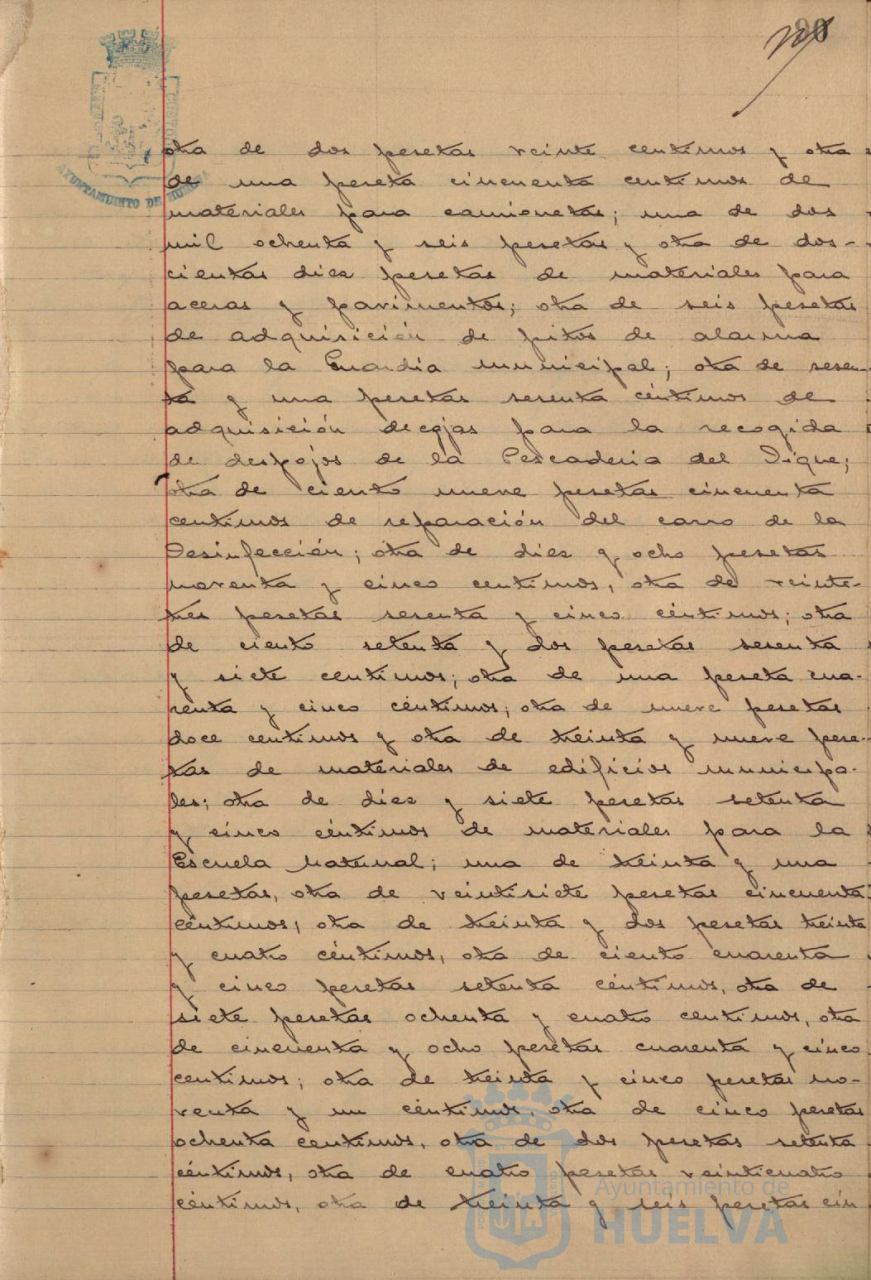 90
AYUNTAMIENTO DE HUELVA
otra de dos pesetas veinte centimos y otra
de una peseta cincuenta centimos de
materiales para camionetas; una de dos
mil ochenta y seis pesetas y otra de dos-
cientas diez pesetas de materiales para
aceras y pavimentos; otra de seis pesetas
de adquisición de pitos de alarma
para la Guardia municipal; otra de sesen-
ta y una pesetas sesenta céntimos de
adquisición de cajas para la recogida
de despojos de la Pescaderia del Dique;
otra de ciento nueve pesetas cincuenta
centimos de reparación del carro de la
Desinfección; otra de diez y ocho pesetas
noventa y cinco centimos, otra de veinte-
tres pesetas sesenta y cinco céntimos; otra
de ciento setenta y dos pesetas sesenta
y siete centimos; otra de una peseta cua-
renta y cinco céntimos; otra de nueve pesetas
doce centimos y otra de treinta y nueve pese-
tas de materiales de edificios municipa-
les; otra de diez y siete pesetas setenta
y cinco céntimos de materiales para la
Escuela Maternal; una de treinta y una
pesetas, otra de veintisiete pesetas cincuenta
céntimos; otra de treinta y dos pesetas treinta
y cuatro céntimos, otra de ciento cuarenta
y cinco pesetas setenta céntimos, otra de
siete pesetas ochenta y cuatro centimos, otra
de cincuenta y ocho pesetas cuarenta y cinco
centimos; otra de treinta y cinco pesetas no-
venta y un céntimos, otra de cinco pesetas
ochenta centimos, otra de dos pesetas setenta
céntimos, otra de cuatro pesetas veinticuatro
céntimos, otra de treinta y seis pesetas cin
Ayuntamiento de
HUELVA